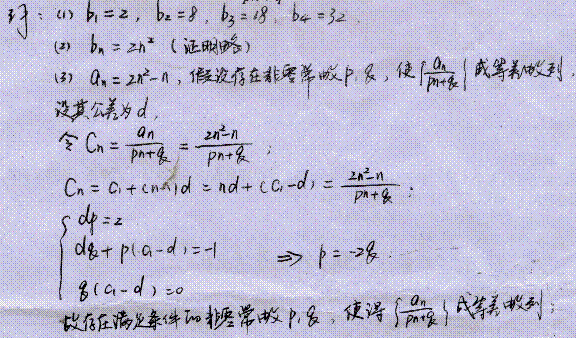 解: (1) b₁=2, b₂=8, b₃=18, b₄=32.
(2) bₙ=2n² (证明略)
(3) aₙ=2n²-n, 假设存在非零常数p,q, 使{aₙ/(pn+q)}成等差数列,
设其公差为d,
令 Cₙ = aₙ/(pn+q) = (2n²-n)/(pn+q);
Cₙ = C₁+(n-1)d = nd+(C₁-d) = (2n²-n)/(pn+q);
dp=2
dq+p(C₁-d)=-1 ⇒ p=-2q.
q(C₁-d)=0
故存在满足条件的非零常数p,q, 使得{aₙ/(pn+q)}成等差数列;